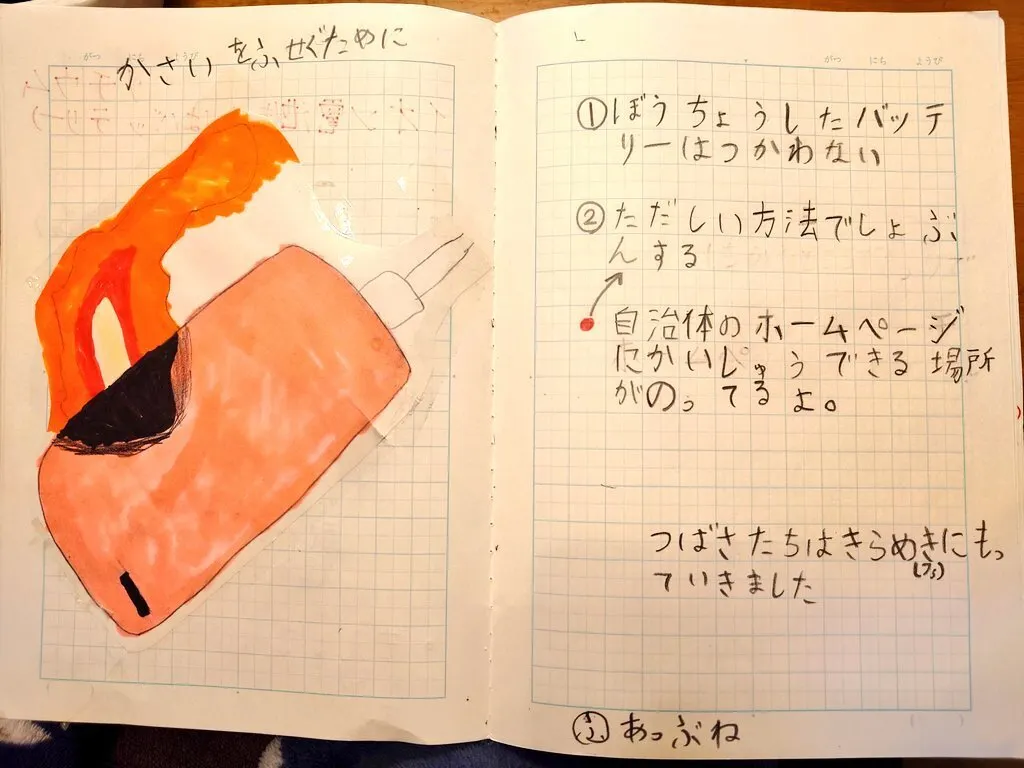 がつ にち ようび
かさいをふせぐために
がつ にち ようび
①ぼうちょうしたバッテ
リーはつかわない
②ただしい方法でしょぶ
んする
自治体のホームページ
にかいしゅうできる場所
がのってるよ。
つばさたちはきらめきにもっ
ていきました
あっぶね